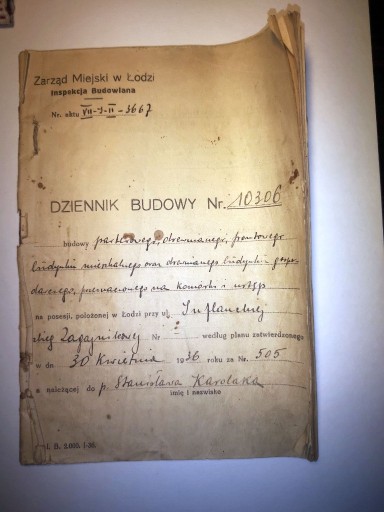 Zarząd Miejski w Łodzi
Inspekcja Budowlana
Nr. aktu VII-I-II-3667
DZIENNIK BUDOWY Nr. 10306
budowy parterowego, drewnianego, frontowego
budynku mieszkalnego oraz drewnianego budynku gospo-
darczego, przeznaczonego na komórki i ustęp
na posesji, położonej w Łodzi przy ul. Inflanckiej
róg Zagajnikowej Nr — według planu zatwierdzonego
w dn 30 Kwietnia 1936 roku za Nr. 505
a należącej do p. Stanisława Karolaka
imię i nazwisko
I. B. 2.000. I-36.